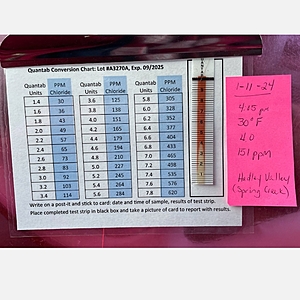 Quantab Conversion Chart: Lot #A3270A, Exp. 09/2025
Quantab Units PPM Chloride Quantab Units PPM Chloride Quantab Units PPM Chloride
1.4 30 3.6 125 5.8 305
1.6 36 3.8 138 6.0 328
1.8 43 4.0 151 6.2 352
2.0 49 4.2 165 6.4 377
2.2 57 4.4 179 6.6 404
2.4 65 4.6 194 6.8 433
2.6 73 4.8 210 7.0 465
2.8 83 5.0 227 7.2 498
3.0 92 5.2 245 7.4 535
3.2 103 5.4 264 7.6 575
3.4 114 5.6 284 7.8 620
Write on a post-it and stick to card: date and time of sample, results of test strip.
Place completed test strip in black box and take a picture of card to report with results.
1-11-24
4:15 pm
30° F
4.0
151 ppm
Hadley Valley
(Spring Creek)